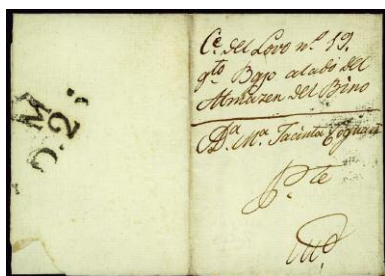 M
D. 2ª
Cᵉ del Lovo nº 19.
qto Bajo al lado del
Almazen del Bino
Dª. Mª. Jacinta
P.te